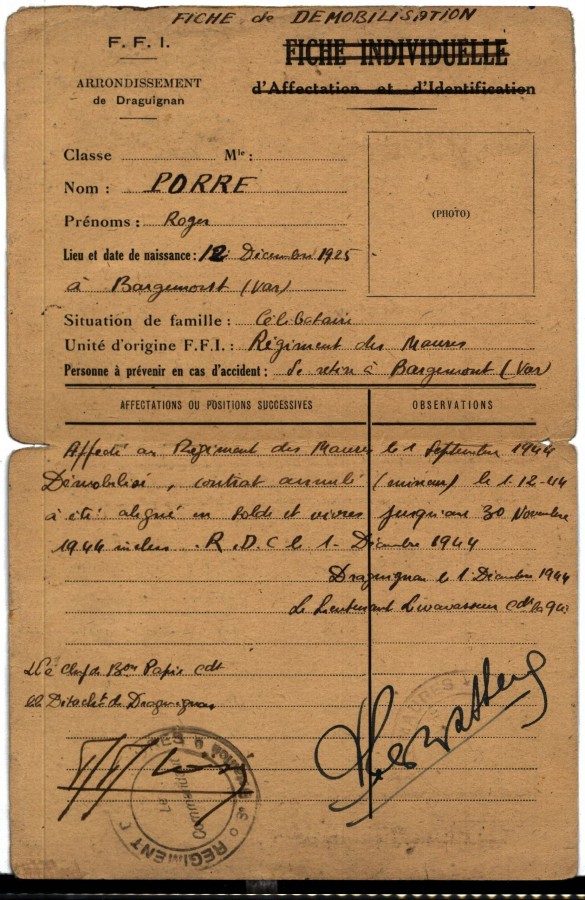 FICHE de DEMOBILISATION
F. F. I.
ARRONDISSEMENT
de Draguignan
FICHE INDIVIDUELLE
d'Affectation et d'Identification
Classe Mle :
Nom : PORRE
Prénoms : Roger
Lieu et date de naissance : 12 Décembre 1925
à Bargemont (Var)
(PHOTO)
Situation de famille : Célibataire
Unité d'origine F.F.I. : Régiment des Maures
Personne à prévenir en cas d'accident : Se retire à Bargemont (Var)
AFFECTATIONS OU POSITIONS SUCCESSIVES
OBSERVATIONS
Affecté au Régiment des Maures le 1 Septembre 1944
Démobilisé, contrat annulé (mineur) le 1.12-44
à été aligné en solde et vivres jusqu'au 30 Novembre
1944 inclus. R.D.C le 1- Décembre 1944
Draguignan le 1 Décembre 1944
Le Lieutenant Levavasseur cdt la
Le chef de Bon Papin cdt
le Détachet de Draguignan
REGIMENT